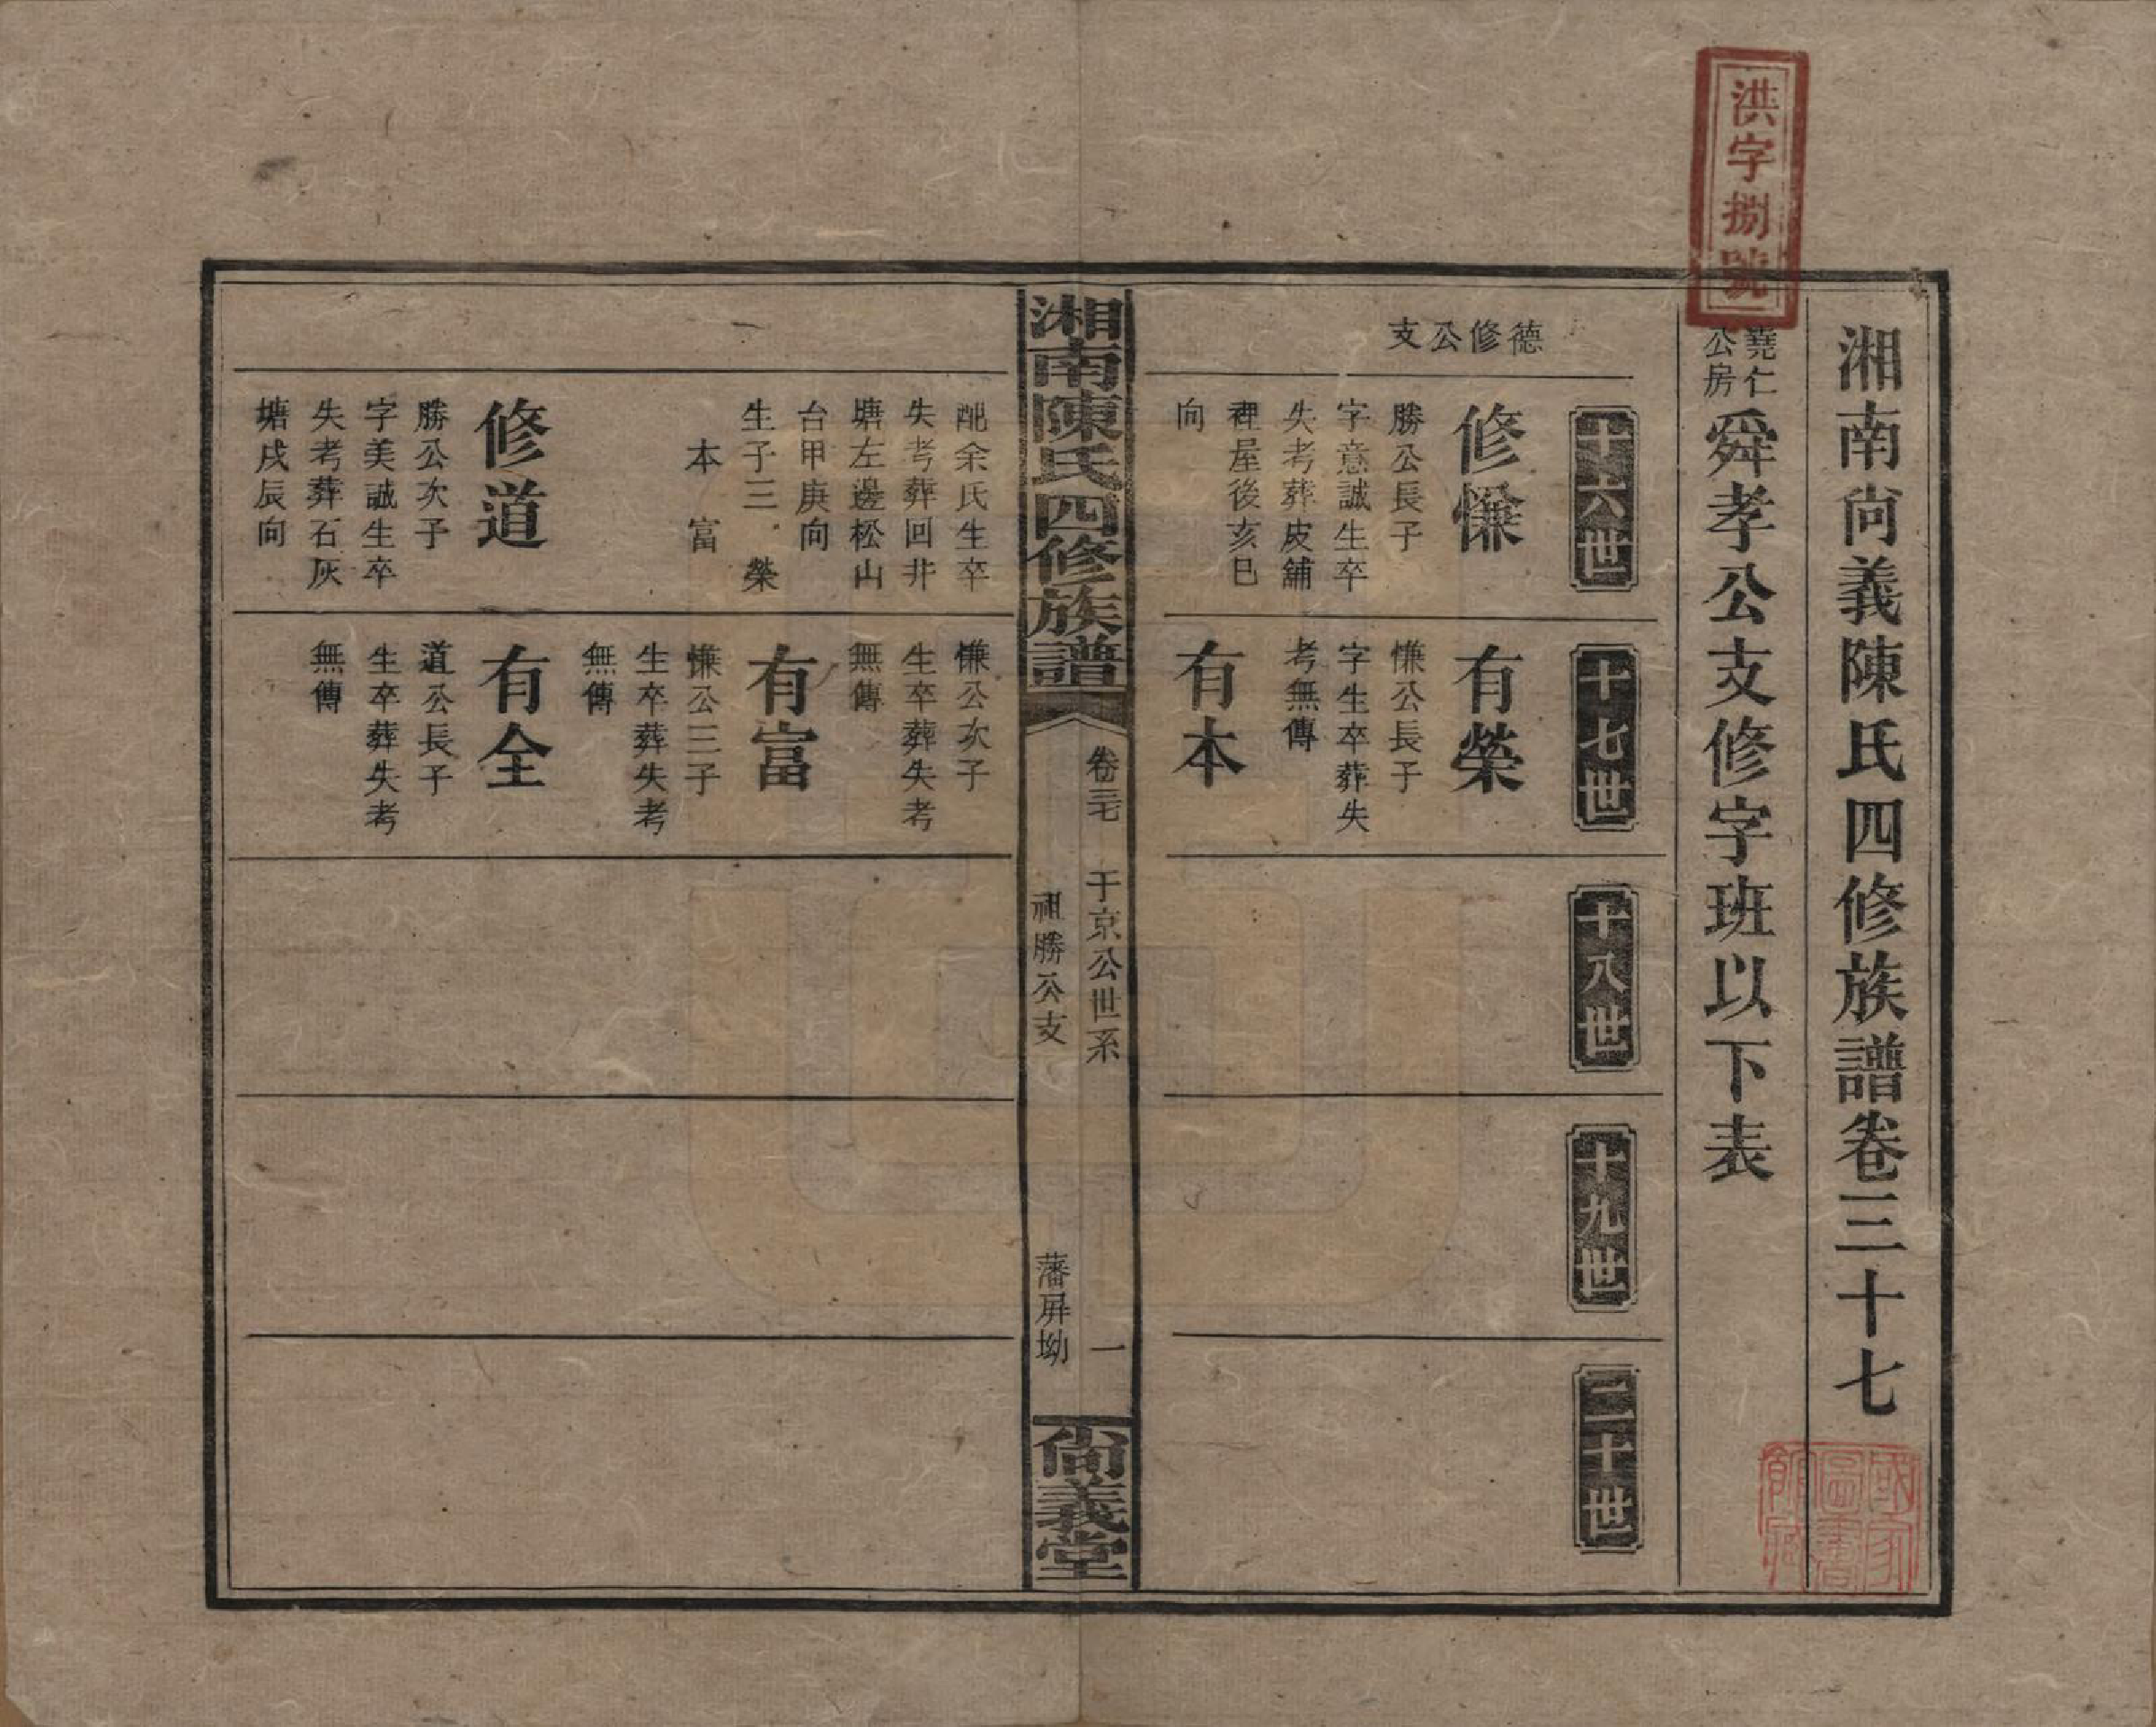 洪字捌號
湘南尚義陳氏四修族譜卷三十七
堯仁公房
舜孝公支修字班以下表
十六世
十七世
十八世
十九世
二十世
德修公支
修慊
勝公長子
字意誠生卒
失考葬皮鋪
裡屋後亥巳
向
配余氏生卒
失考葬回井
塘左邊松山
台甲庚向
生子三 榮
本 富
修道
勝公次子
字美誠生卒
失考葬石灰
塘戌辰向
有榮
慊公長子
字生卒葬失
考無傳
有本
慊公次子
生卒葬失考
無傳
有富
慊公三子
生卒葬失考
無傳
有全
道公長子
生卒葬失考
無傳
湘南陳氏四修族譜
卷三七
于京公世系
一
祖勝公支
藩屏坳
尚義堂
國家圖書館藏